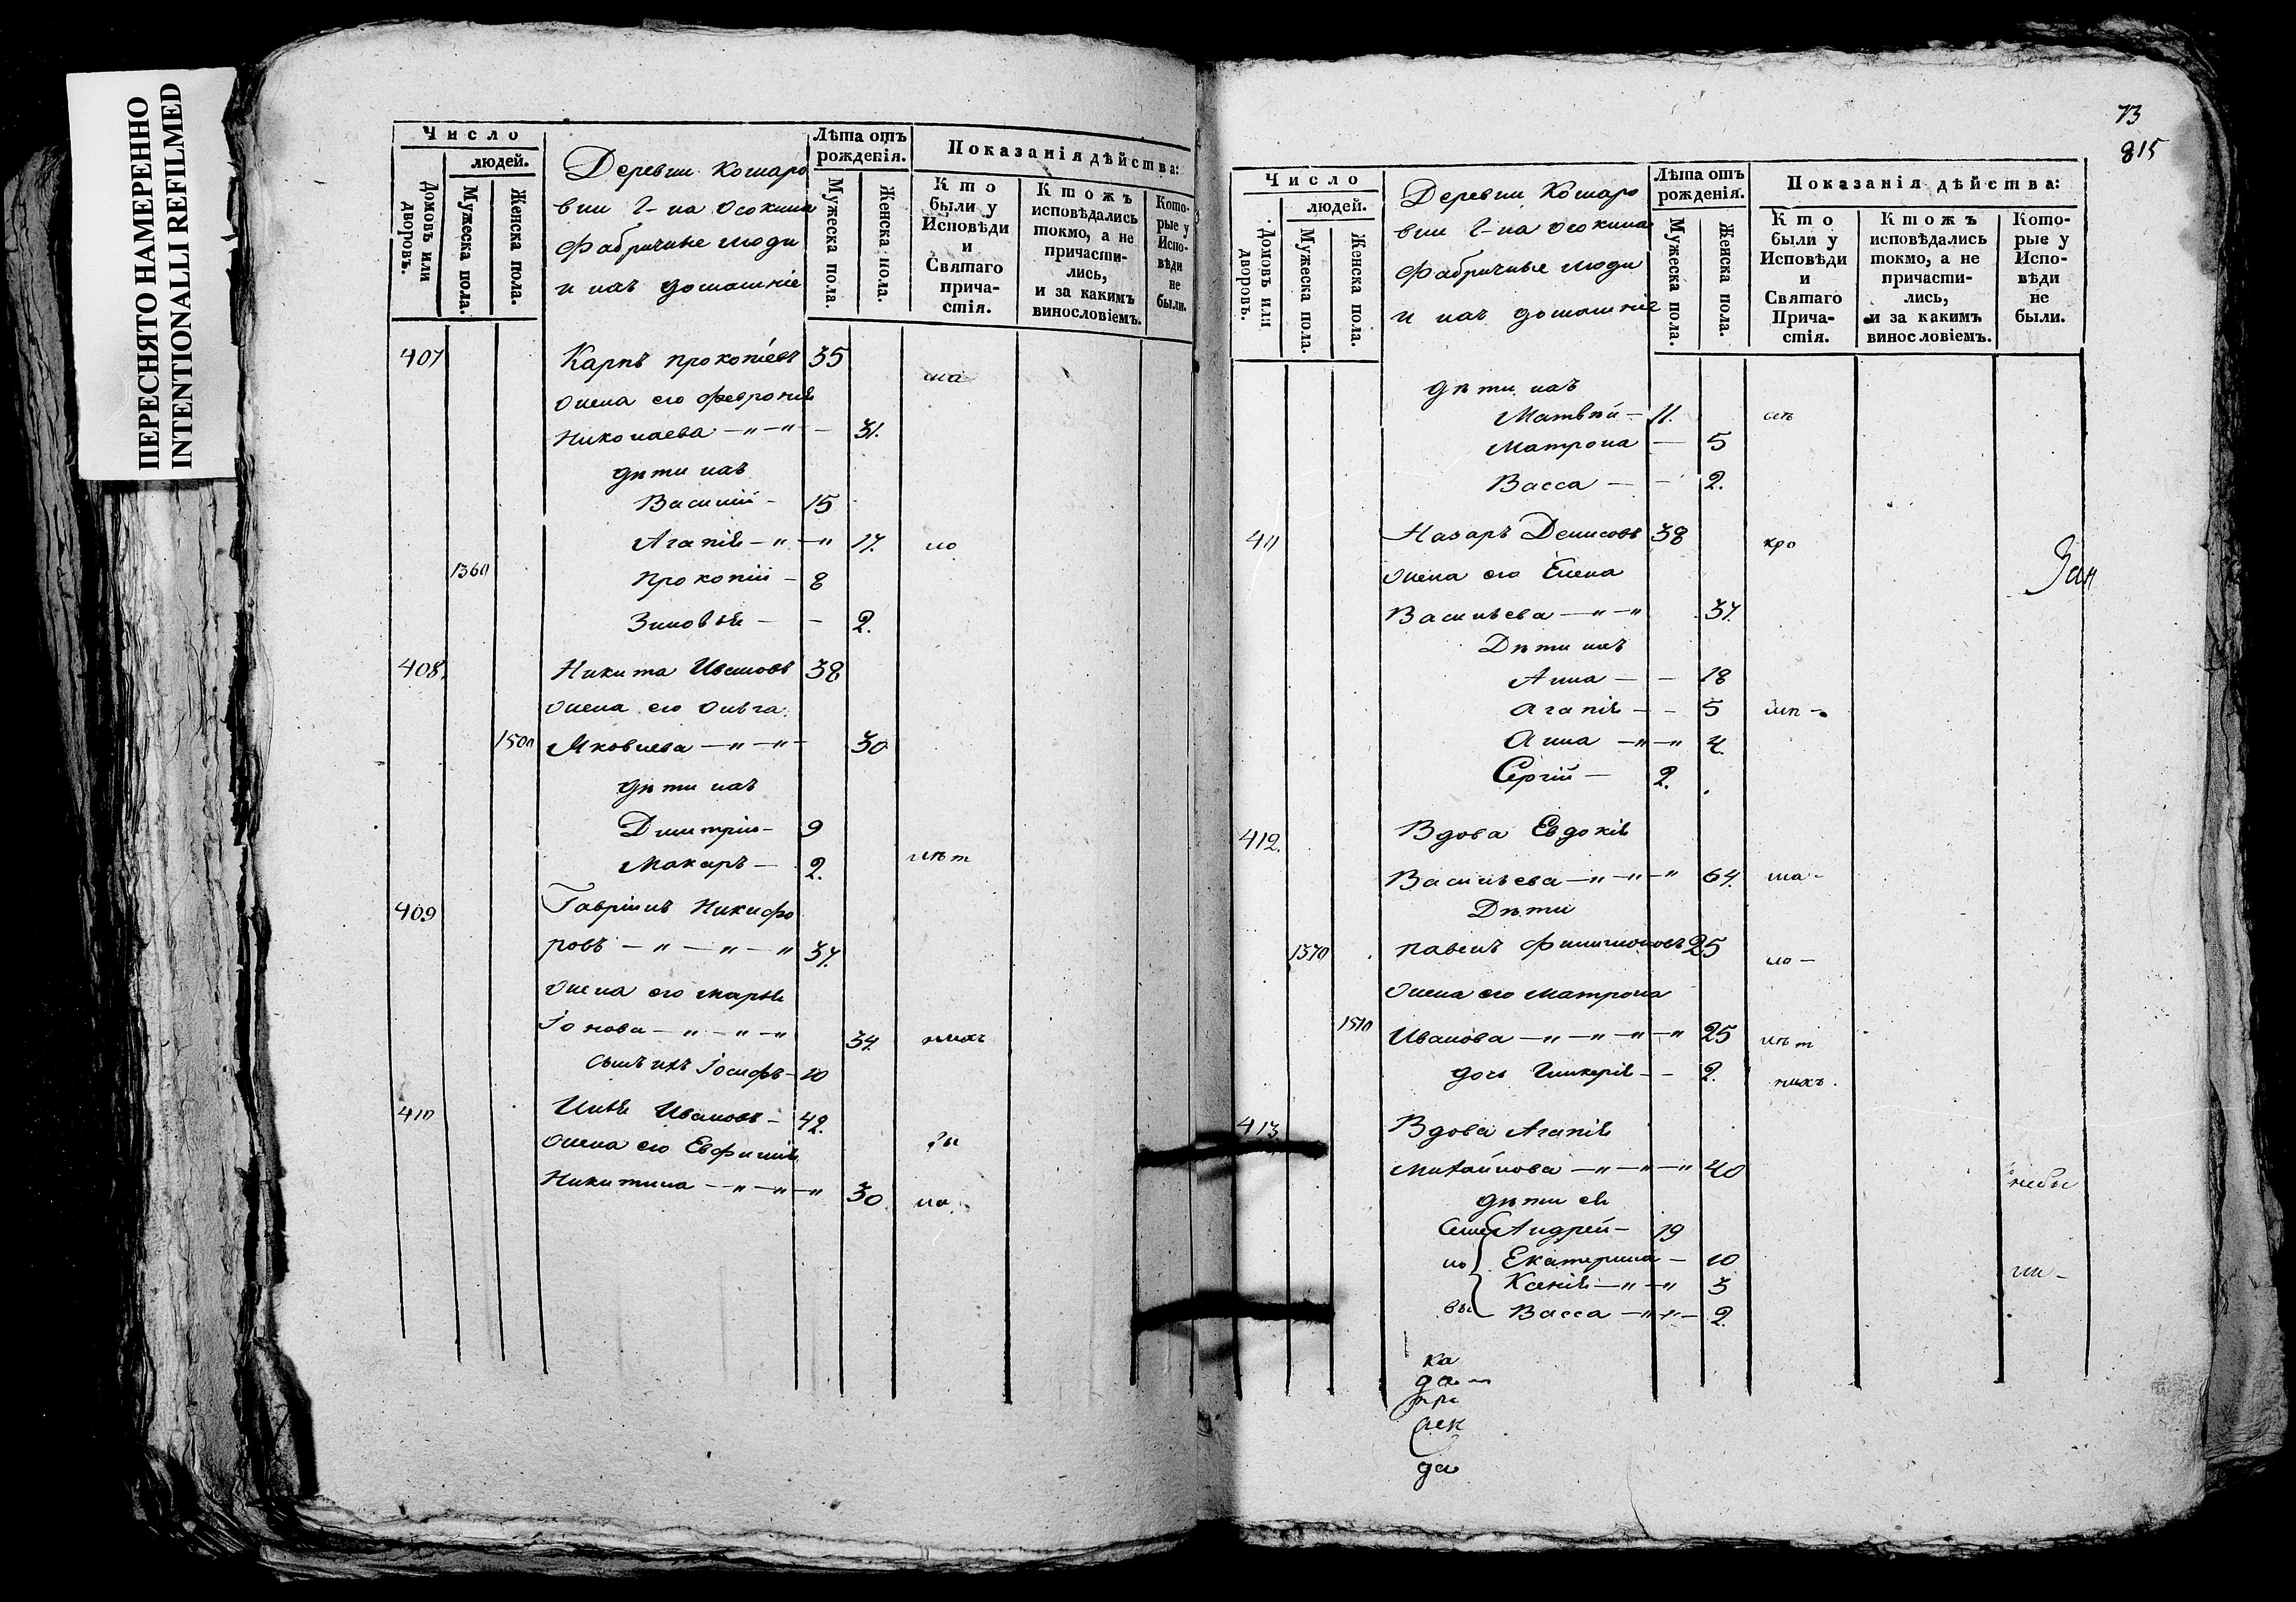 ПЕРЕСНЯТО НАМЕРЕННО
INTENTIONALLI REFILMED
Число
людей.
Домовъ или дворовъ.
Мужеска пола.
Женска пола.
Деревни Кошаро
вни Г-на Осокина
Фабричные люди
и ихъ домашніе
Лѣта отъ рожденія.
Мужеска пола.
Женска пола.
Показанія дѣйства:
Кто были у Исповѣди и Святаго причастія.
Ктожъ исповѣдались токмо, а не причастились, и за какимъ винословіемъ.
Которые у Исповѣди не были.
407 Карпъ Прокопіевъ 35
жена его Февронія
Николаева — " — " — 31.
дѣти ихъ
Василій — 15
Агапія — " — " 17. ло
1360 Прокопій — 8
Зиновья — — 2.
408. Никита Ивановъ 38
жена его Ольга
1500 Яковлева — " — " — 30
дѣти ихъ
Димитрій — 9
Макаръ — 2.
409 Гавріилъ Никифо
ровъ — " — " — " 37.
жена его Марья
Іонова — " — " — " 34.
сынъ ихъ Іосифъ — 10
410 Илья Ивановъ — 42.
жена его Евфимія
Никитина — " — " — " 30.
73
815
Число
людей.
Домовъ или дворовъ.
Мужеска пола.
Женска пола.
Деревни Кошаро
вни Г-на Осокина
Фабричные люди
и ихъ домашніе
Лѣта отъ рожденія.
Мужеска пола.
Женска пола.
Показанія дѣйства:
Кто были у Исповѣди и Святаго Причастія.
Ктожъ исповѣдались токмо, а не причастились, и за какимъ винословіемъ.
Которые у Исповѣди не были.
дѣти ихъ
Матвѣй — 11.
Матрона — 5
Васса — — 2.
411 Назаръ Денисовъ 38 кро
жена его Елена
Васильева — " — " 37.
Дѣти ихъ
Анна — — 18
Агапія — — 5
Анна — " — " 4.
Сергій — 2.
412. Вдова Евдокія
Васильева — " — " — " 64. ма —
Дѣти
1370 Павелъ Филимоновъ 25 ло —
жена его Матрона
1510 Иванова — " — " — " — " 25 лѣт
дочь Гликерія — — 2. нихъ.
413 Вдова Агапія
Михайлова — " — " — " 40 небы
дѣти ея
Андрей — 19
Екатерина — 10 ли —
Ксенія — " — " 3
Васса — " — " — 2.
ка
да
да